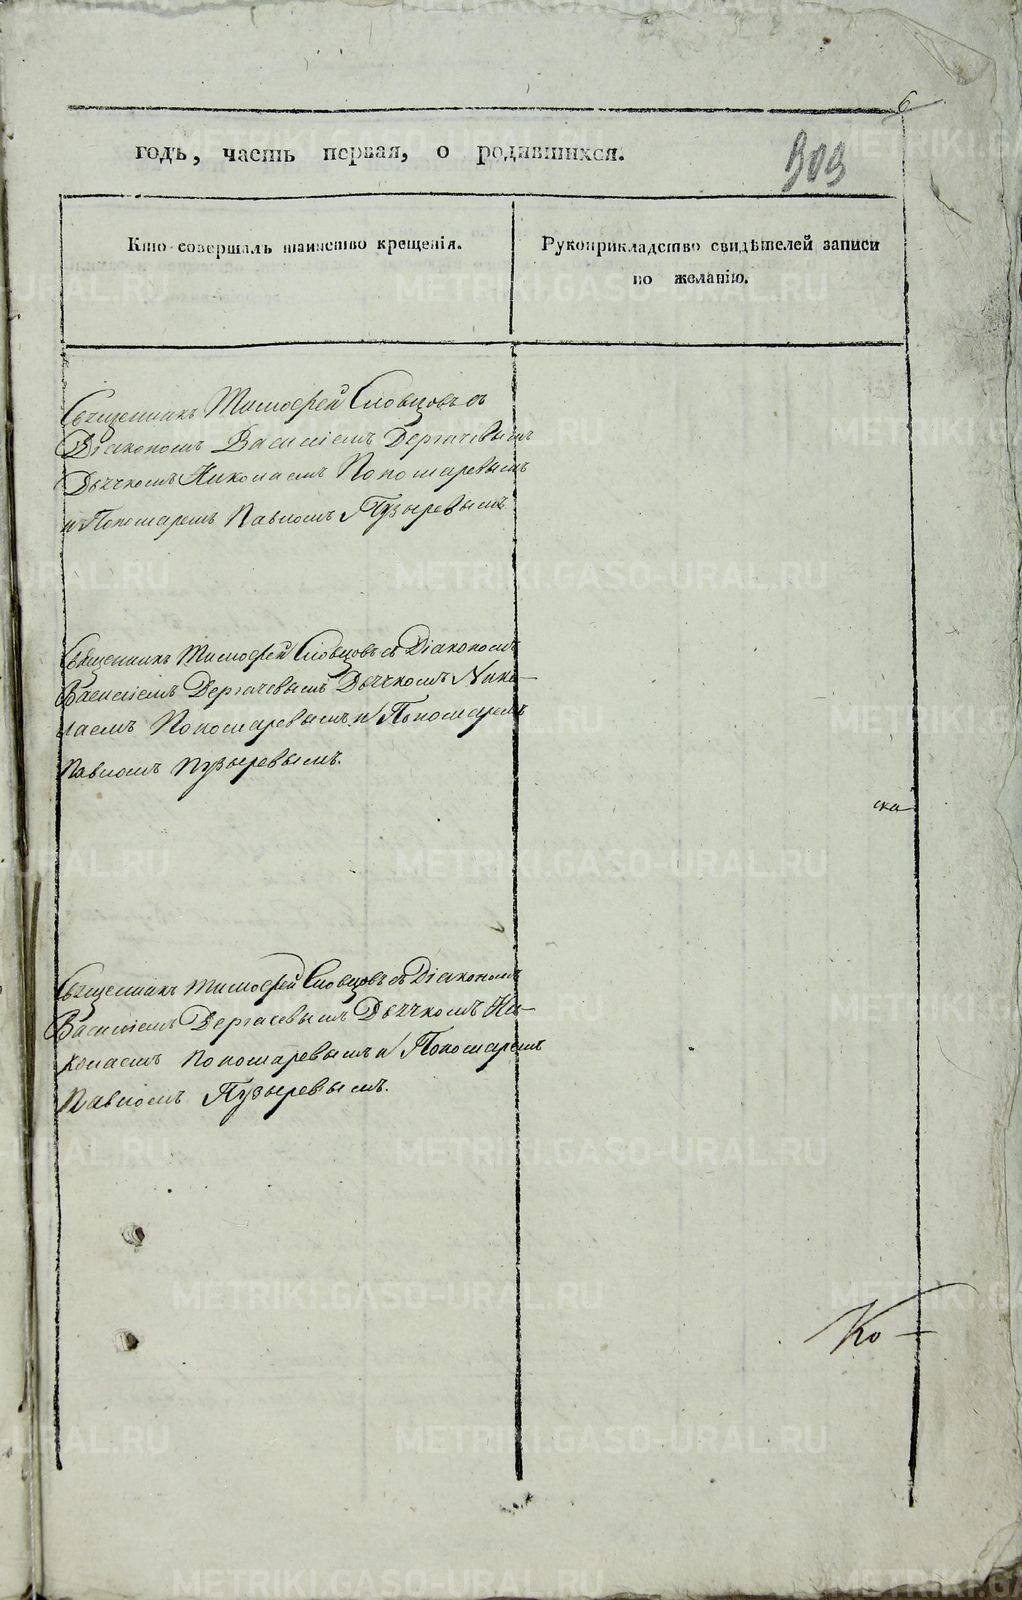 6
годъ, часть первая, о родившихся.
303
Кто совершалъ таинство крещенія.
Рукоприкладство свидѣтелей записи
по желанію.
Священникъ Тимофей Словцовъ съ
Діакономъ Василіемъ Дергачевымъ
Дьячкомъ Николаемъ Пономаревымъ
и Пономаремъ Павломъ Пузыревымъ
Священникъ Тимофей Словцовъ съ Діакономъ
Василіемъ Дергачевымъ Дьячкомъ Нико-
лаемъ Пономаревымъ и Пономаремъ
Павломъ Пузыревымъ.
ска
Священникъ Тимофей Словцовъ съ Діакономъ
Василіемъ Дергачевымъ Дьячкомъ Ни-
колаемъ Пономаревымъ и Пономаремъ
Павломъ Пузыревымъ.
Ко-
METRIKI.GASO-URAL.RU